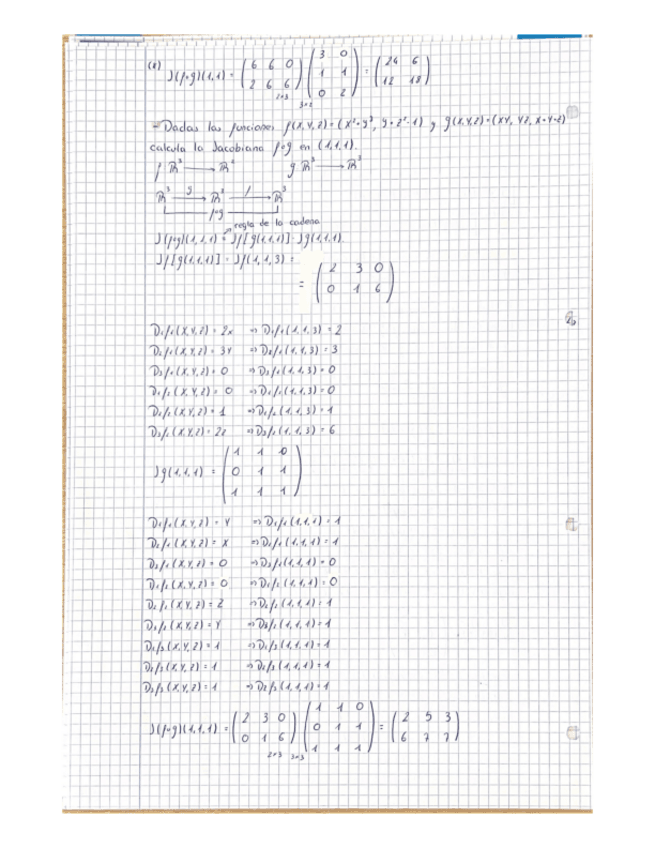 (*) J(f∘g)(1,1) = (6 6 0; 2 6 6) 2×3 (3 0; 1 1; 0 2) 3×2 = (24 6; 12 18)
- Dadas las funciones f(x,y,z)=(x²+y³, y+z²-1) y g(x,y,z)=(xy, yz, x+y+z)
calcula la Jacobiana f∘g en (1,1,1).
f ℝ³ → ℝ² g ℝ³ → ℝ³
ℝ³ g→ ℝ³ f→ ℝ³
f∘g
regla de la cadena
J(f∘g)(1,1,1) = Jf[g(1,1,1)] · Jg(1,1,1)
Jf[g(1,1,1)] = Jf(1,1,3) =
= (2 3 0; 0 1 6)
D₁f₁(x,y,z) = 2x ⇒ D₁f₁(1,1,3) = 2
D₂f₁(x,y,z) = 3y ⇒ D₂f₁(1,1,3) = 3
D₃f₁(x,y,z) = 0 ⇒ D₃f₁(1,1,3) = 0
D₁f₂(x,y,z) = 0 ⇒ D₁f₂(1,1,3) = 0
D₂f₂(x,y,z) = 1 ⇒ D₂f₂(1,1,3) = 1
D₃f₂(x,y,z) = 2z ⇒ D₃f₂(1,1,3) = 6
Jg(1,1,1) = (1 1 0; 0 1 1; 1 1 1)
D₁f₁(x,y,z) = y ⇒ D₁f₁(1,1,1) = 1
D₂f₁(x,y,z) = x ⇒ D₂f₁(1,1,1) = 1
D₃f₁(x,y,z) = 0 ⇒ D₃f₁(1,1,1) = 0
D₁f₂(x,y,z) = 0 ⇒ D₁f₂(1,1,1) = 0
D₂f₂(x,y,z) = z ⇒ D₂f₂(1,1,1) = 1
D₃f₂(x,y,z) = y ⇒ D₃f₂(1,1,1) = 1
D₁f₃(x,y,z) = 1 ⇒ D₁f₃(1,1,1) = 1
D₂f₃(x,y,z) = 1 ⇒ D₂f₃(1,1,1) = 1
D₃f₃(x,y,z) = 1 ⇒ D₃f₃(1,1,1) = 1
J(f∘g)(1,1,1) = (2 3 0; 0 1 6) 2×3 (1 1 0; 0 1 1; 1 1 1) 3×3 = (2 5 3; 6 7 7)